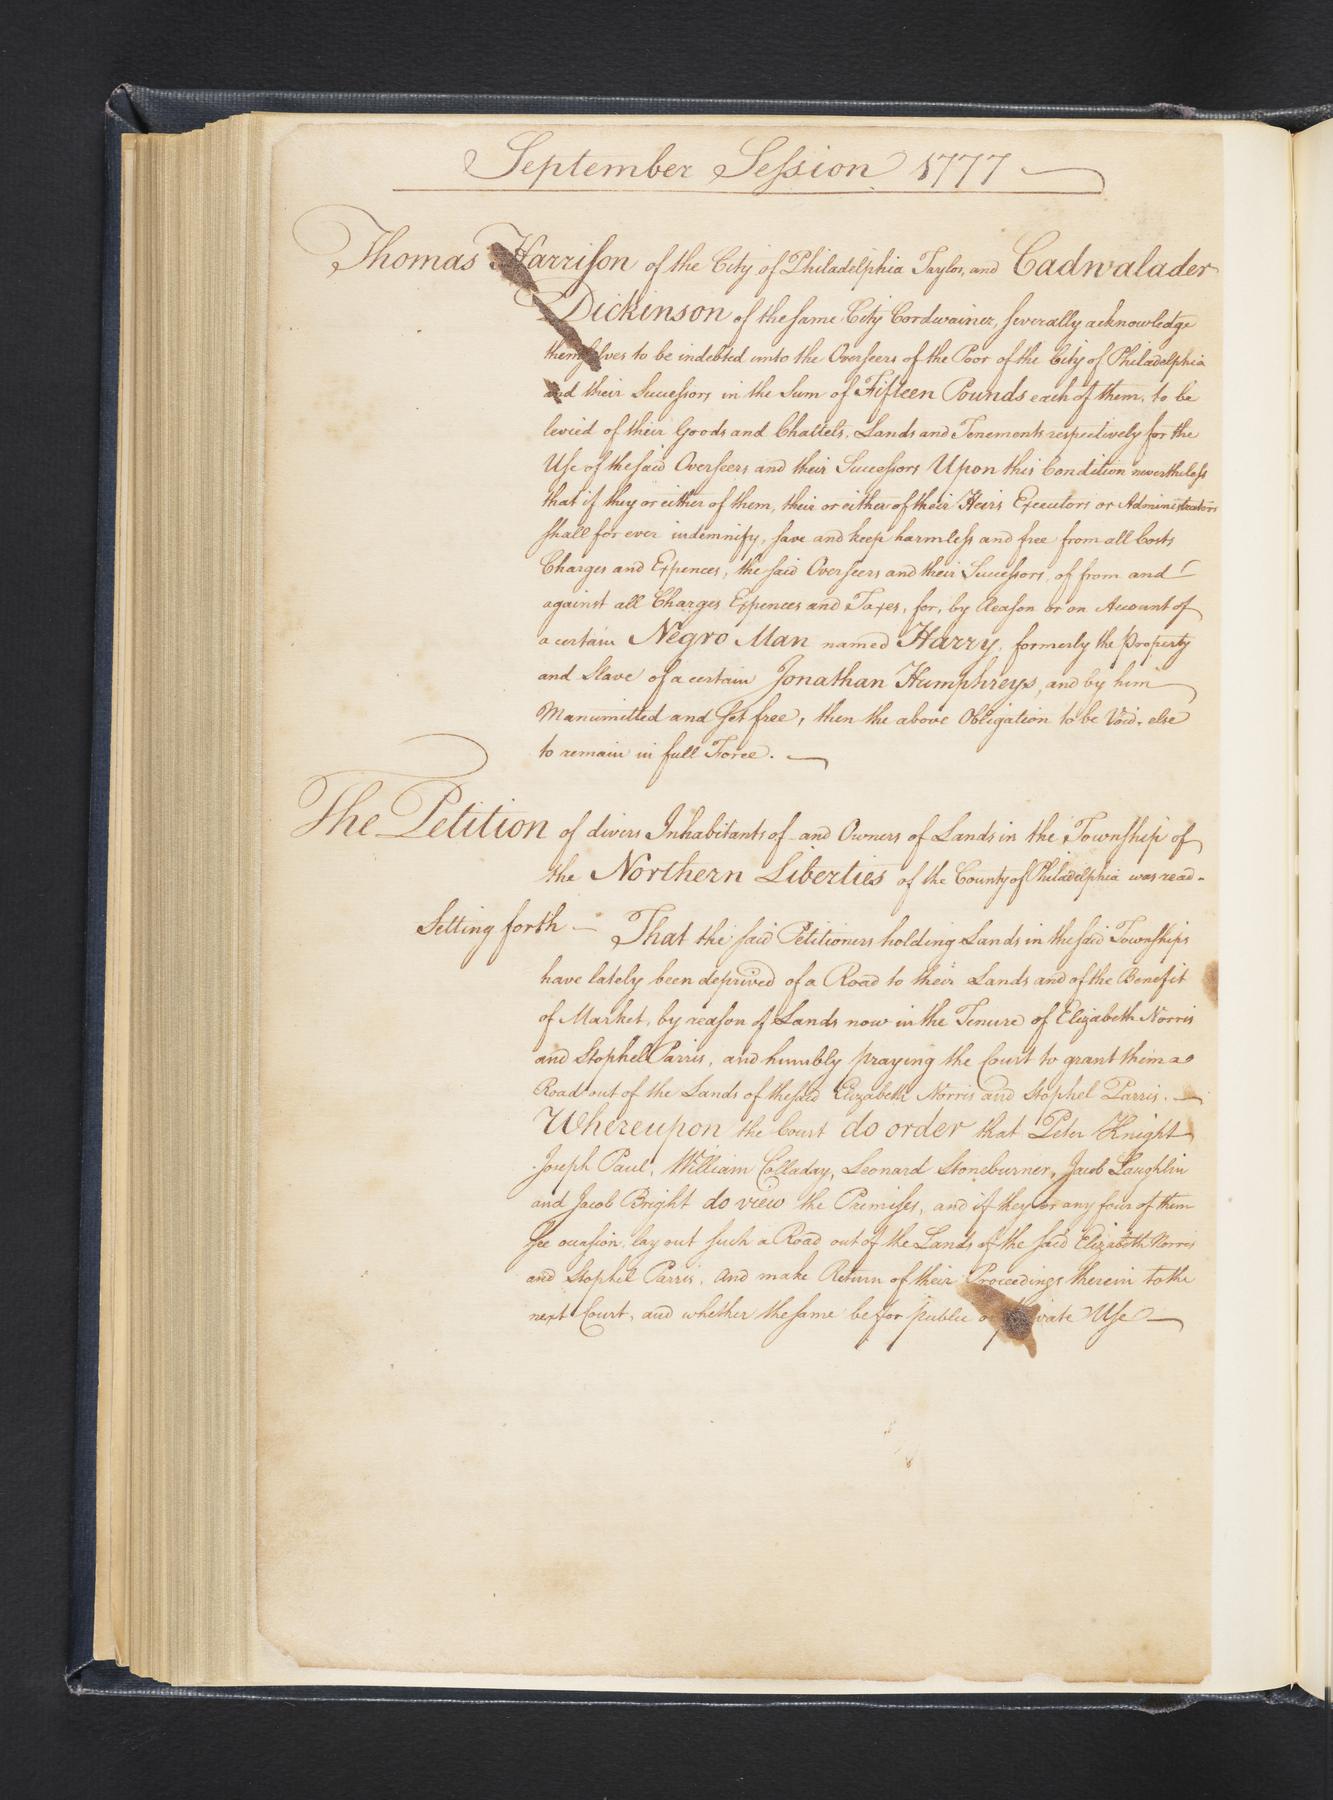 September Session 1777
Thomas Harrison of the City of Philadelphia Taylor, and Cadwalader
Dickinson of the same City Cordwainer, severally acknowledge
themselves to be indebted unto the Overseers of the Poor of the City of Philadelphia
and their Successors in the Sum of Fifteen Pounds each of them, to be
levied of their Goods and Chattels, Lands and Tenements respectively for the
Use of the said Overseers and their Successors Upon this Condition nevertheless
that if they or either of them, their or either of their Heirs Executors or Administrators
shall for ever indemnify, save and keep harmless and free from all Costs
Charges and Expences, the said Overseers and their Successors, of from and
against all Charges Expences and Taxes, for, by Reason or on Account of
a certain Negro Man named Harry, formerly the Property
and Slave of a certain Jonathan Humphreys, and by him
Manumitted and set free, then the above Obligation to be Void, else
to remain in full Force.
The Petition of divers Inhabitants of and Owners of Lands in the Township of
the Northern Liberties of the County of Philadelphia was read-
Setting forth — That the said Petitioners holding Lands in the said Townships
have lately been deprived of a Road to their Lands and of the Benefit
of Market, by reason of Lands now in the Tenure of Elizabeth Norris
and Stophel Parris, and humbly praying the Court to grant them a
Road out of the Lands of the said Elizabeth Norris and Stophel Parris. —
Whereupon the Court do order that Peter Knight
Joseph Paul, William Colladay, Leonard Stoneburner, Jacob Laughlin
and Jacob Bright do view the Premises, and if they or any four of them
see occasion, lay out such a Road out of the Lands of the said Elizabeth Norris
and Stophel Parris, and make Return of their Proceedings therein to the
next Court, and whether the same be for public or private Use —